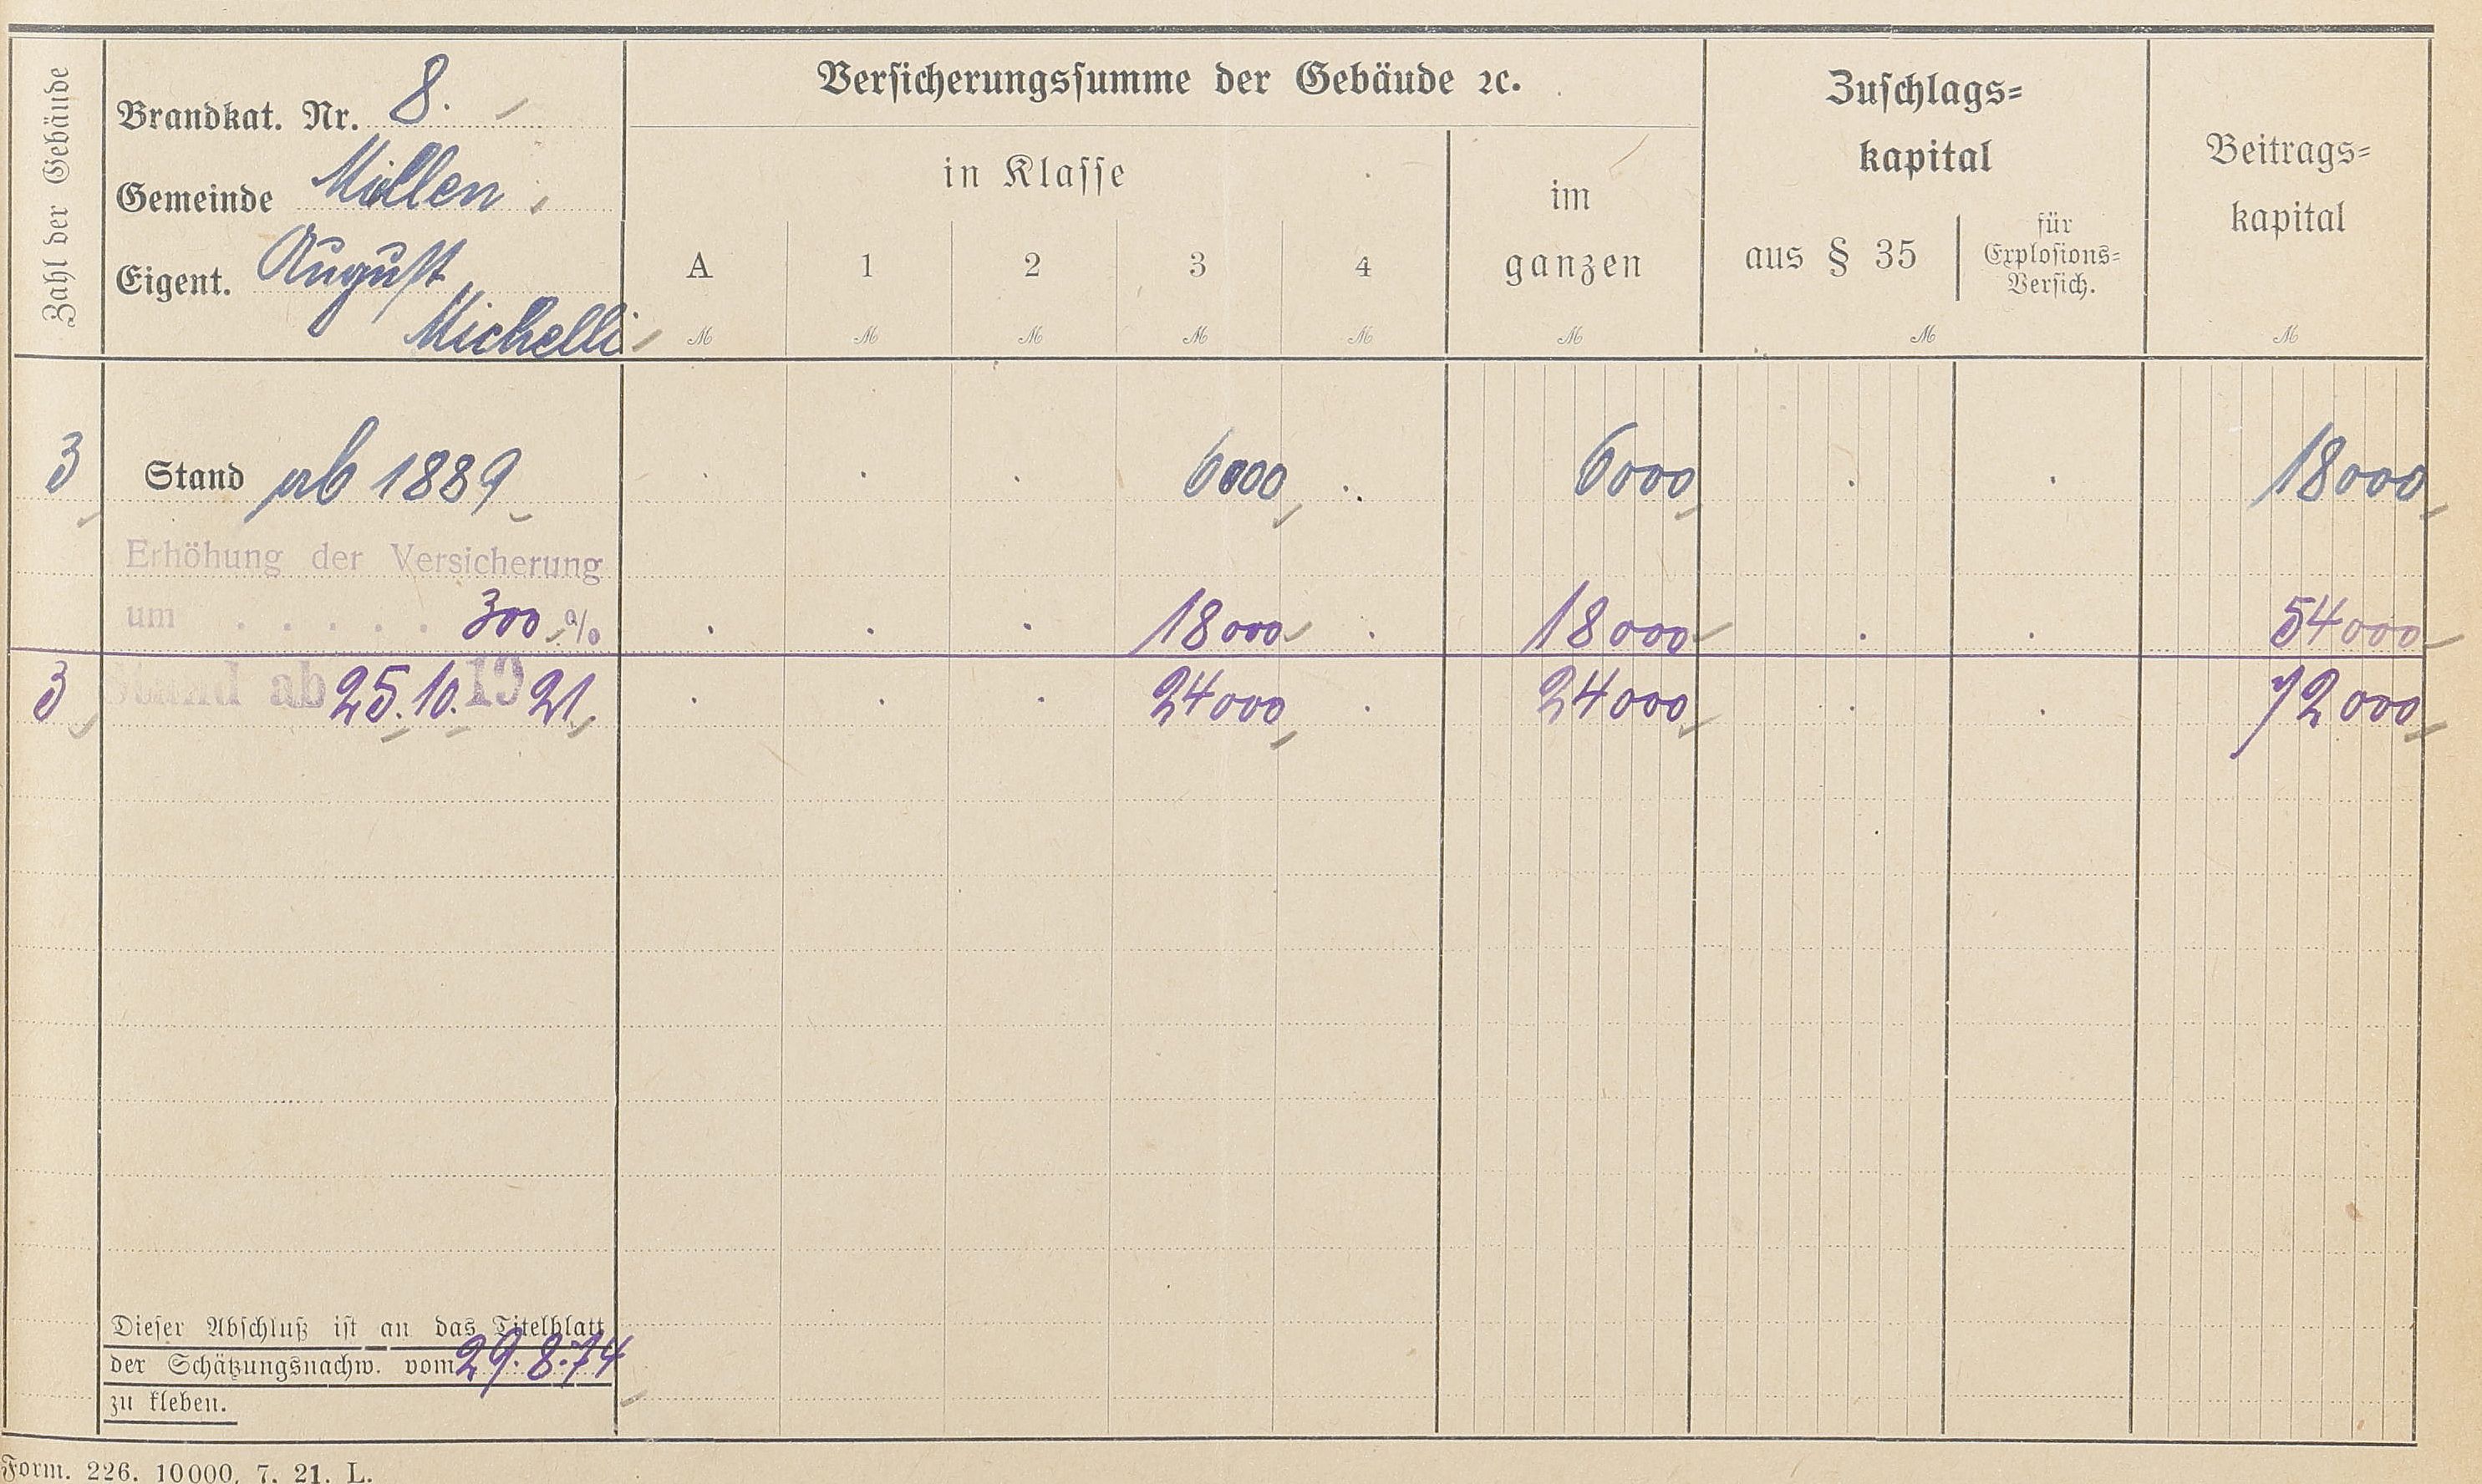 Zahl der Gebäude
Brandkat. Nr. 8.
Gemeinde Möllen
Eigent. August
Michelli
Versicherungssumme der Gebäude ꝛc.
in Klasse
A 1 2 3 4
M M M M M
im
ganzen
M
Zuschlags=
kapital
aus § 35
für
Explosions=
Versich.
M
Beitrags=
kapital
M
3 Stand ab 1889 . . . 6000 . 6000 . . 18000
Erhöhung der Versicherung
um . . . . . 300 % . . . 18000 . 18000 . . 54000
3 Stand ab 25.10.1921 . . . 24000 . 24000 . . 72000
Dieser Abschluß ist an das Titelblatt
der Schätzungsnachw. vom 29.8.74
zu kleben.
Form. 226. 10000. 7. 21. L.